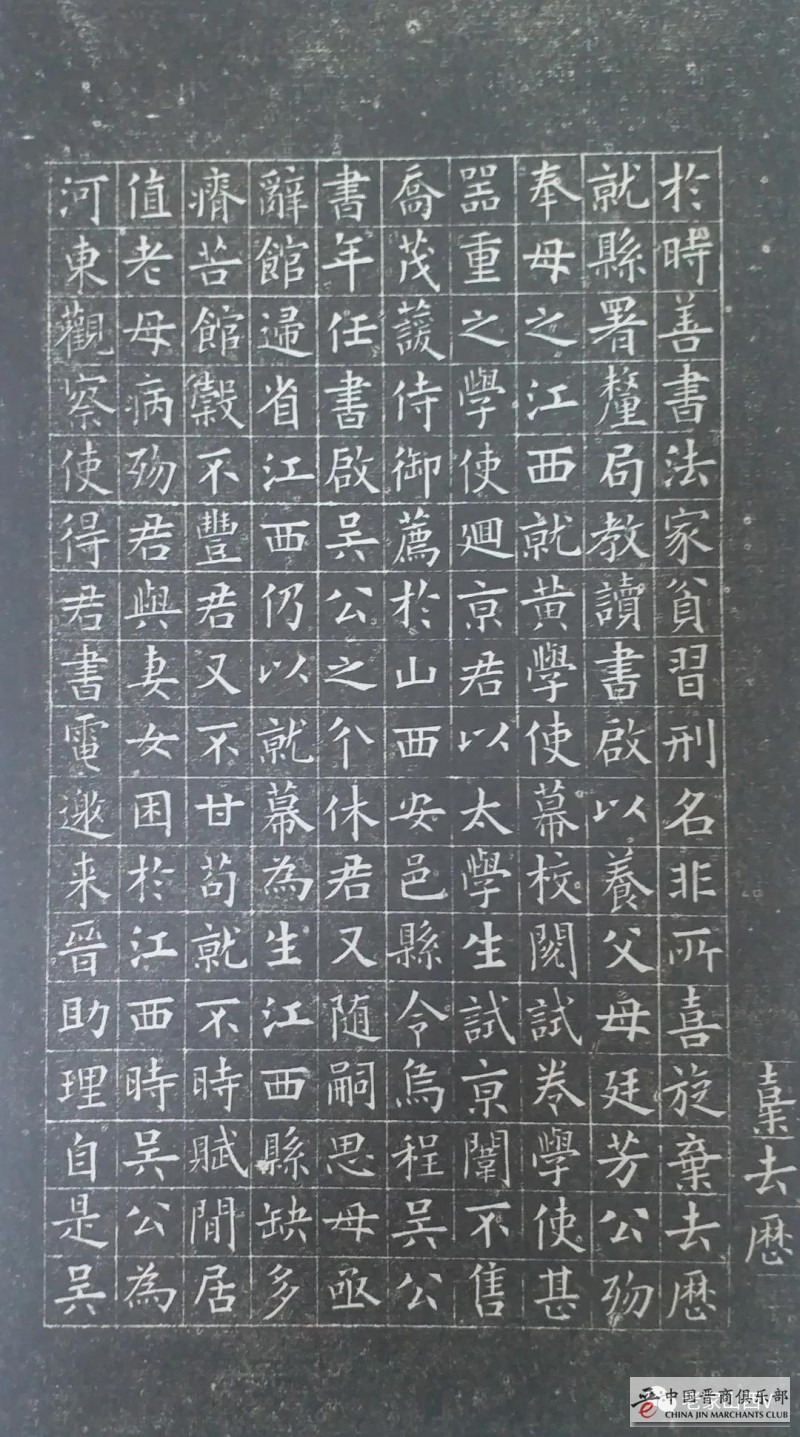 棄去厯
於時善書法家貧習刑名非所喜旋棄去厯
就縣署釐局教讀書啟以養父母廷芳公歿
奉母之江西就黄學使幕校閱試卷學使甚
器重之學使迴京君以太學生試京闈不售
喬茂蘐侍御薦於山西安邑縣令烏程吳公
書年任書啟吳公之个休君又随嗣思母亟
辭館歸省江西仍以就幕為生江西縣缺多
瘠苦館穀不豐君又不甘苟就不時賦閒居
值老母病歿君與妻女困於江西時吳公為
河東觀察使得君書電邀来晉助理自是吳
中国晋商俱乐部
CHINA JIN MARCHANTS CLUB